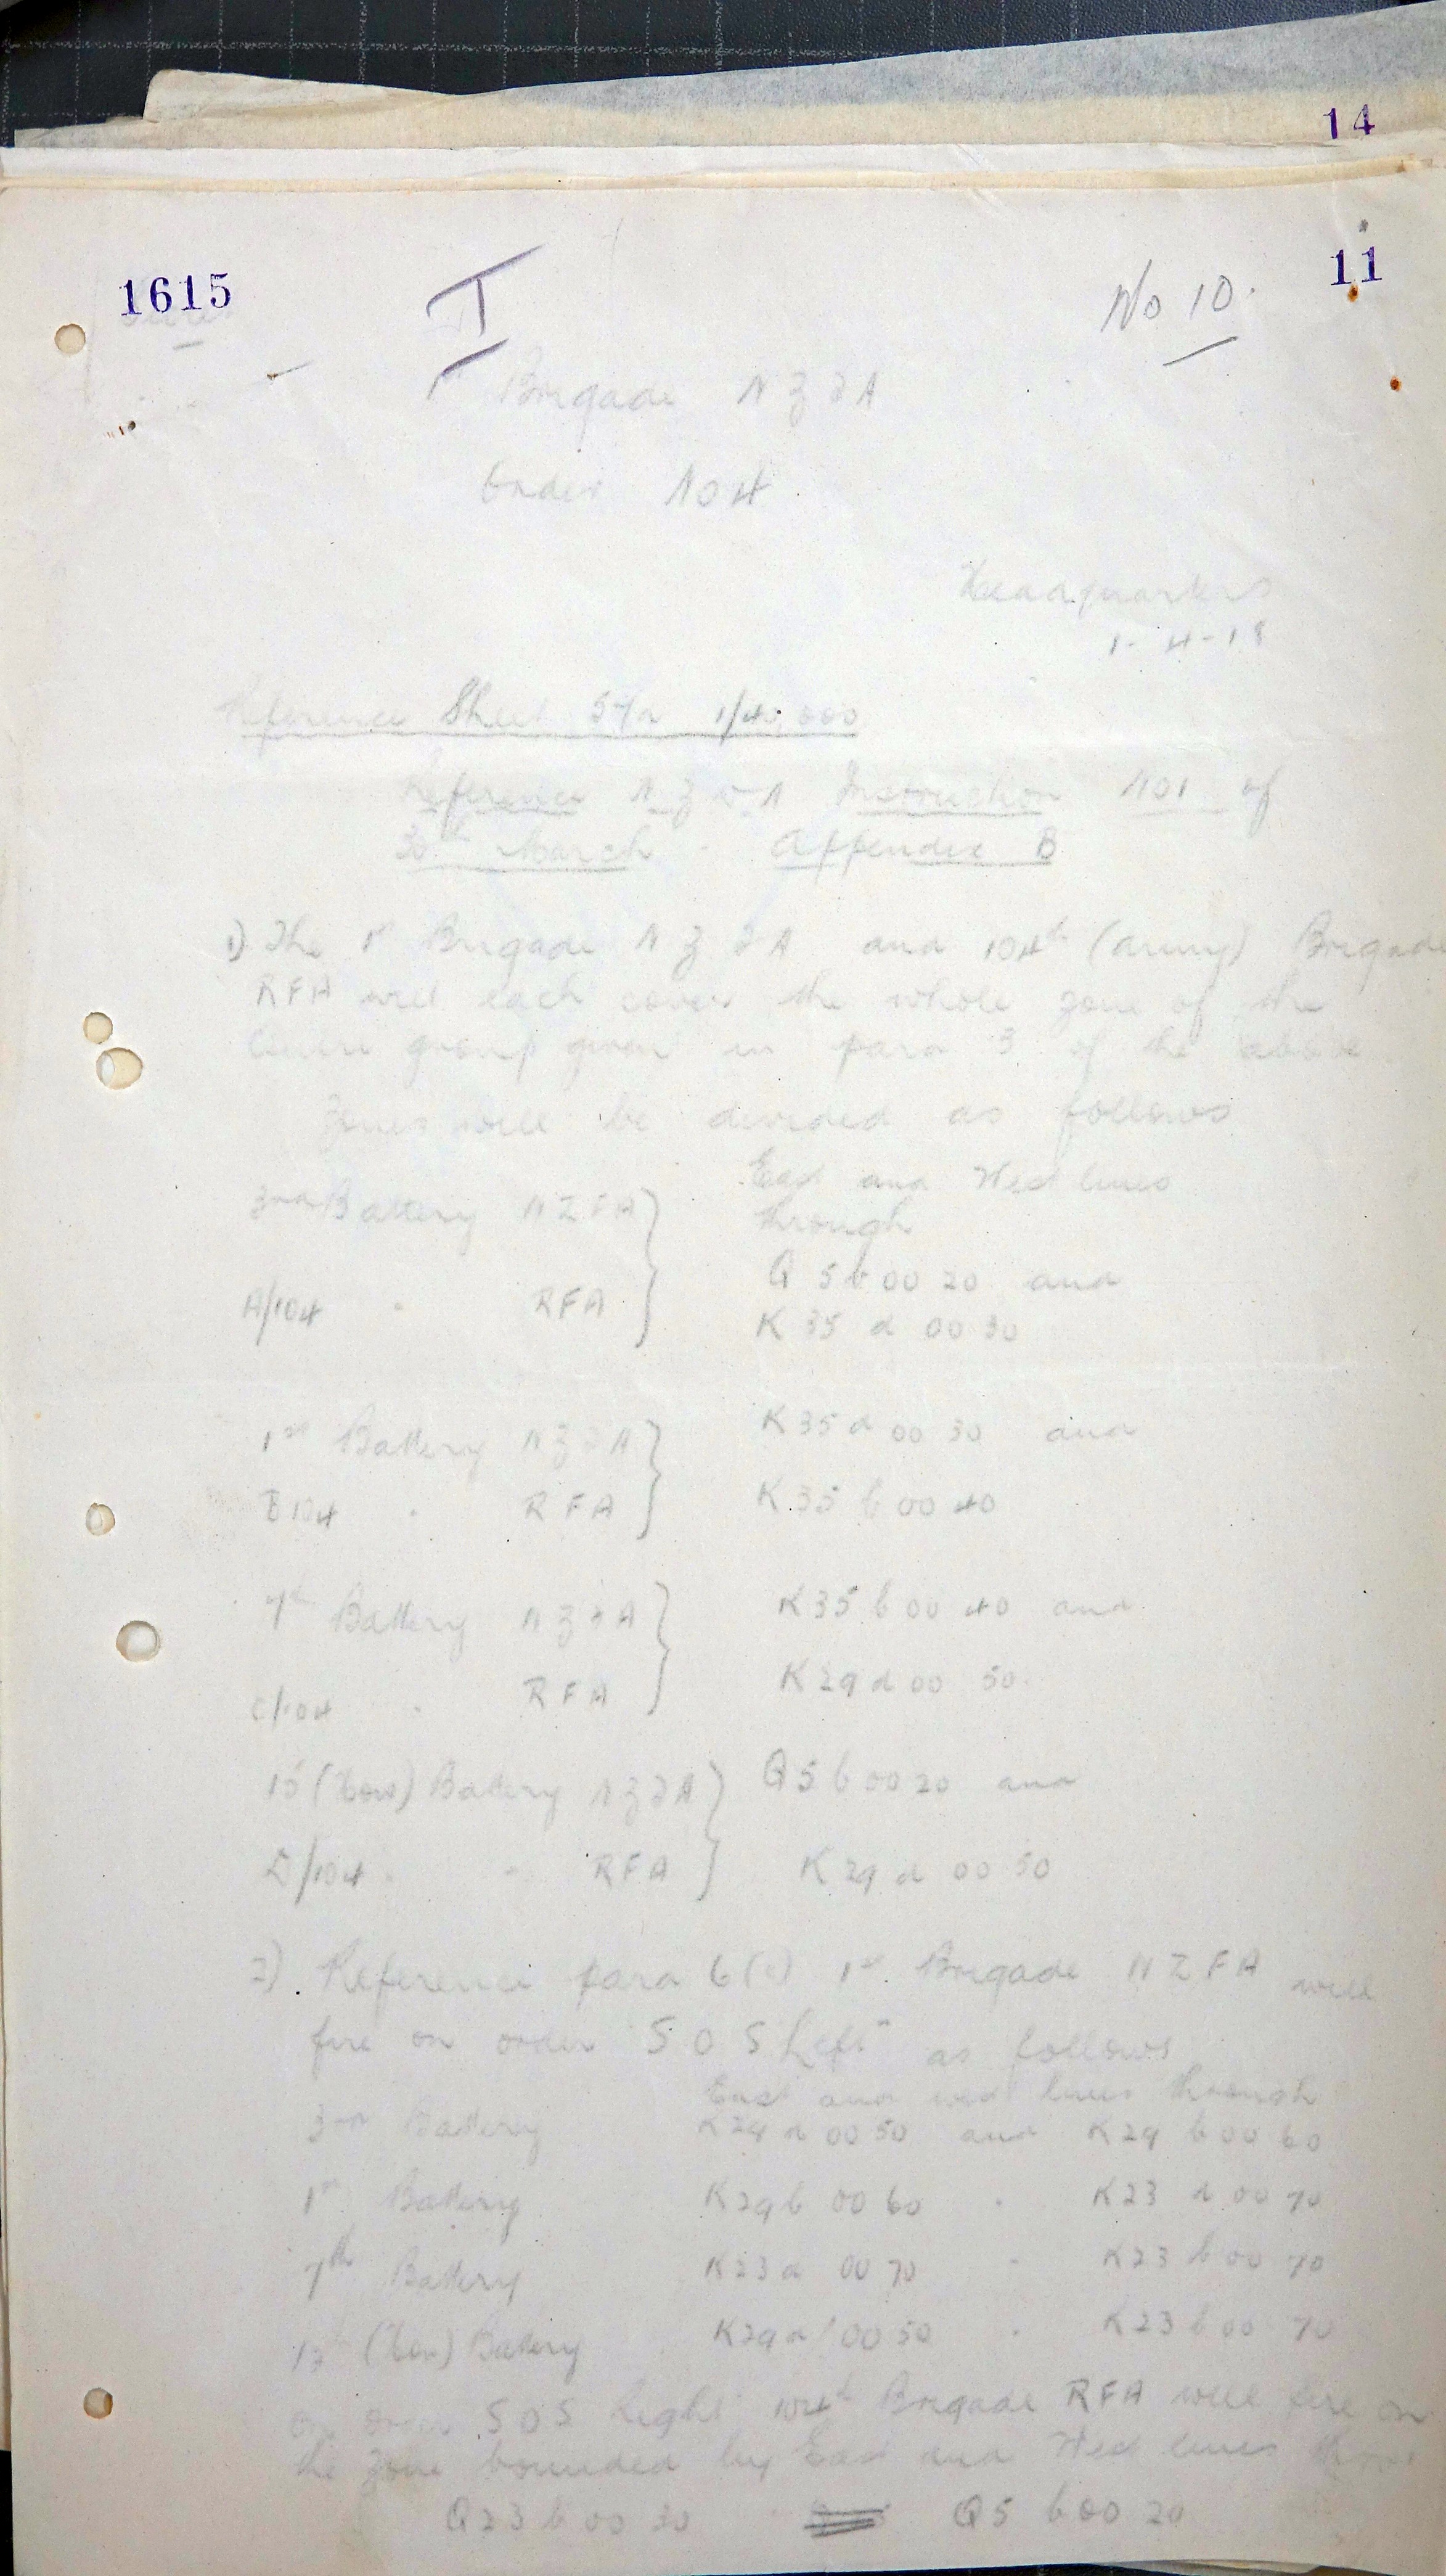 14
1615
I
No 10.
11
1st Brigade NZFA
Order No 4
Headquarters
1-4-18
Reference Sheet 57D 1/40,000
Reference NZDA Instruction No 1 of
30th March - Appendix B
1) The 1st Brigade NZFA and 104th (Army) Brigade
RFA will each cover the whole zone of the
Centre group given in para 3 of the above
Zones will be divided as follows
East and West lines
3rd Battery NZFA } through
Q 5 b 00 20 and
A/104 " RFA } K 35 d 00 30
1st Battery NZFA } K 35 d 00 30 and
B/104 " RFA } K 35 b 00 40
7th Battery NZFA } K 35 b 00 40 and
C/104 " RFA } K 29 d 00 50.
15 (How) Battery NZFA } Q 5 b 00 20 and
D/104 " RFA } K 29 d 00 50
2) Reference para 6 (c) 1st Brigade NZFA will
fire on order "SOS Left" as follows
East and West lines through
3rd Battery K 29 d 00 50 and K 29 b 00 60
1st Battery K 29 b 00 60 " K 23 d 00 70
7th Battery K 23 d 00 70 " K 23 b 00 70
(How) Battery K 29 d 00 50 " K 23 b 00 70
on order SOS Right 104th Brigade RFA will fire on
the zone bounded by East and West lines
Q 23 b 00 30 Q 5 b 00 20